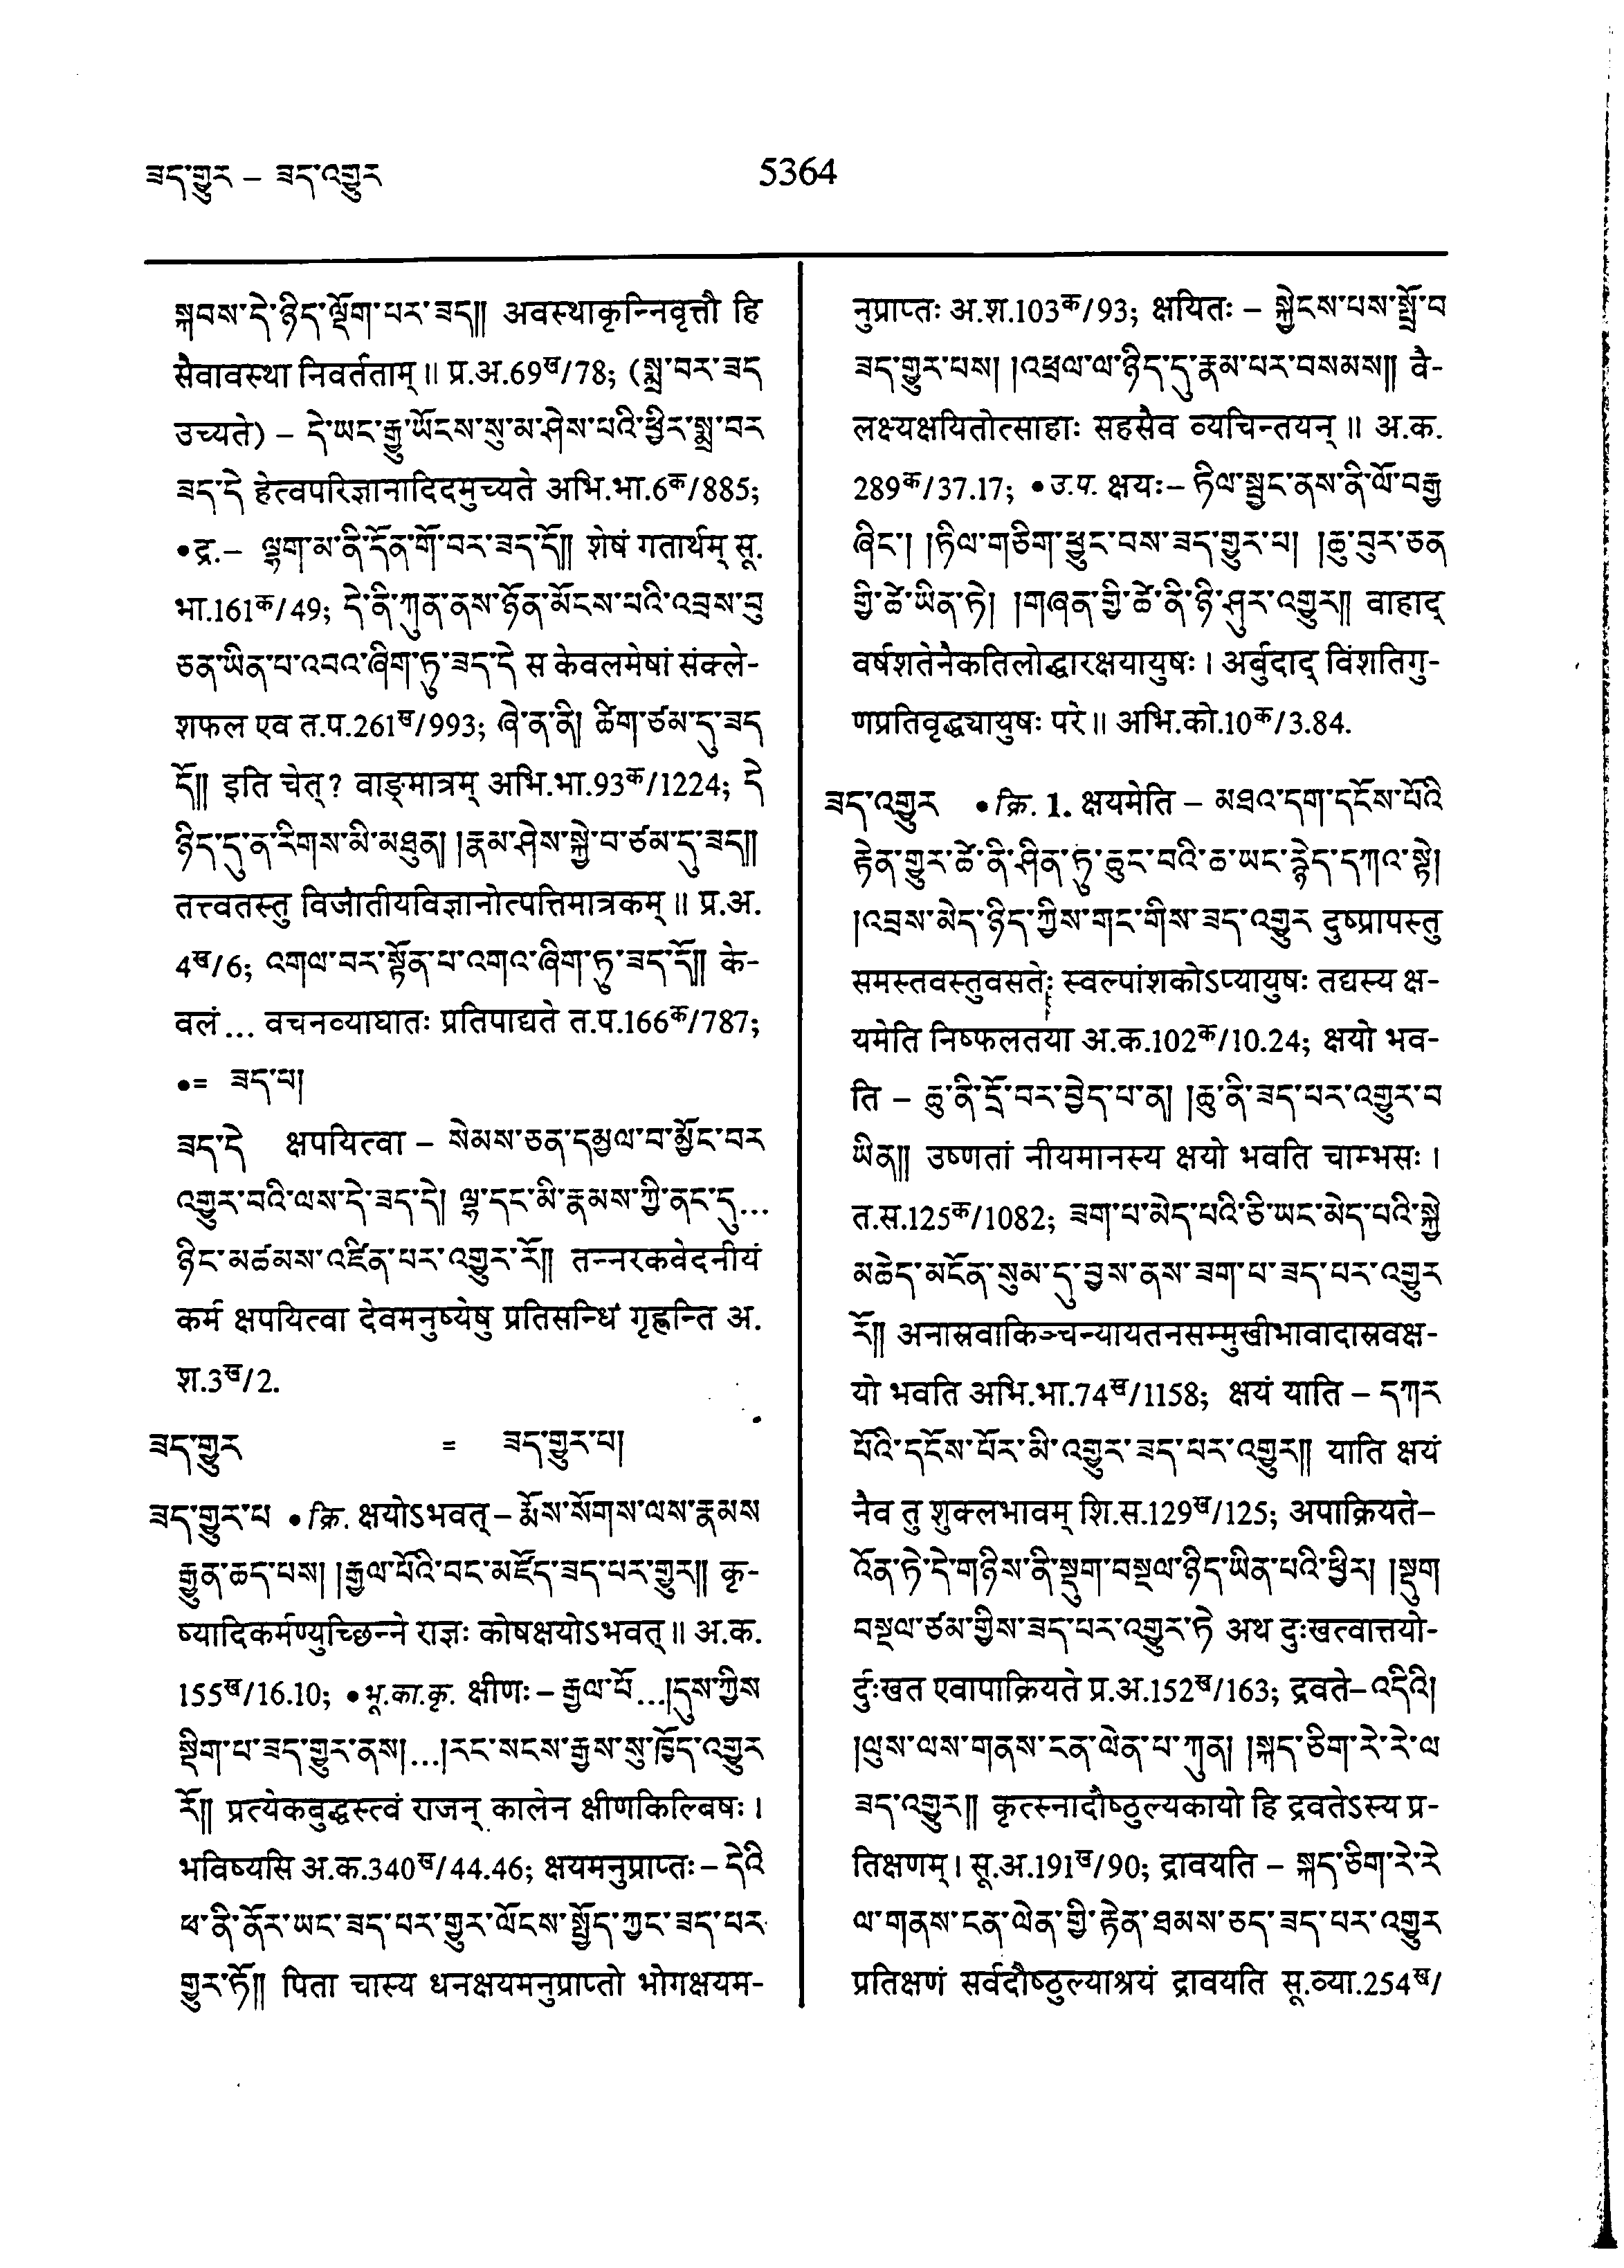 ཟད་གྱུར – ཟད་འགྱུར
5364
སྐབས་དེ་ཉིད་ལྡོག་པར་ཟད།། अवस्थाकृन्निवृत्तौ हि
सैवावस्था निवर्तताम् ॥ प्र.अ.69ख/78; (སྨྲ་བར་ཟད
उच्यते) – དེ་ཡང་རྒྱུ་ཡོངས་སུ་མ་ཤེས་པའི་ཕྱིར་སྨྲ་བར
ཟད་དེ हेत्वपरिज्ञानादिदमुच्यते अभि.भा.6क/885;
•द्र.– ལྷག་མ་ནི་དོན་གོ་བར་ཟད་དོ།། शेषं गतार्थम् सू.
भा.161क/49; དེ་ནི་ཀུན་ནས་ཉོན་མོངས་པའི་འབྲས་བུ
ཅན་ཡིན་པ་འབའ་ཞིག་ཏུ་ཟད་དེ स केवलमेषां संक्ले-
शफल एव त.प.261ख/993; ཞེ་ན་ནི། ཚིག་ཙམ་དུ་ཟད
དོ།། इति चेत्? वाङ्मात्रम् अभि.भा.93क/1224; དེ
ཉིད་དུ་ན་རིགས་མི་མཐུན། །རྣམ་ཤེས་སྐྱེ་བ་ཙམ་དུ་ཟད།།
तत्त्वतस्तु विजातीयविज्ञानोत्पत्तिमात्रकम् ॥ प्र.अ.
4ख/6; འགལ་བར་སྟོན་པ་འགའ་ཞིག་ཏུ་ཟད་དོ།། के-
वलं... वचनव्याघातः प्रतिपाद्यते त.प.166क/787;
•= ཟད་པ།
ཟད་དེ क्षपयित्वा – སེམས་ཅན་དམྱལ་བ་མྱོང་བར
འགྱུར་བའི་ལས་དེ་ཟད་དེ། ལྷ་དང་མི་རྣམས་ཀྱི་ནང་དུ...
ཉིང་མཚམས་འཛིན་པར་འགྱུར་རོ།། तन्नरकवेदनीयं
कर्म क्षपयित्वा देवमनुष्येषु प्रतिसन्धिं गृह्णन्ति अ.
श.3ख/2.
ཟད་གྱུར = ཟད་གྱུར་པ།
ཟད་གྱུར་པ •क्रि. क्षयोऽभवत् – རྨོས་སོགས་ལས་རྣམས
རྒྱུན་ཆད་པས། །རྒྱལ་པོའི་བང་མཛོད་ཟད་པར་གྱུར།། कृ-
ष्यादिकर्मण्युच्छिन्ने राज्ञः कोषक्षयोऽभवत् ॥ अ.क.
155ख/16.10; •भू.का.कृ. क्षीणः – རྒྱལ་པོ...།དུས་ཀྱིས
སྡིག་པ་ཟད་གྱུར་ནས།...།རང་སངས་རྒྱས་སུ་ཁྱོད་འགྱུར
རོ།། प्रत्येकबुद्धस्त्वं राजन् कालेन क्षीणकिल्बिषः ।
भविष्यसि अ.क.340ख/44.46; क्षयमनुप्राप्तः – དེའི
ཕ་ནི་ནོར་ཡང་ཟད་པར་གྱུར་ལོངས་སྤྱོད་ཀྱང་ཟད་པར
གྱུར་ཏོ།། पिता चास्य धनक्षयमनुप्राप्तो भोगक्षयम-
नुप्राप्तः अ.श.103क/93; क्षयितः – སྐྱེངས་པས་སྤྲོ་བ
ཟད་གྱུར་པས། །འཕྲལ་ལ་ཉིད་དུ་རྣམ་པར་བསམས།། वै-
लक्ष्यक्षयितोत्साहाः सहसैव व्यचिन्तयन् ॥ अ.क.
289क/37.17; •उ.प. क्षयः– ཏིལ་སྦྱང་ནས་ནི་ལོ་བརྒྱ
ཞིང་། །ཏིལ་གཅིག་ཕྱུང་བས་ཟད་གྱུར་པ། །ཆུ་བུར་ཅན
གྱི་ཚེ་ཡིན་ཏེ། །གཞན་གྱི་ཚེ་ནི་ཉི་ཤུར་འགྱུར།། वाहाद्
वर्षशतेनैकतिलोद्धारक्षयायुषः । अर्बुदाद् विंशतिगु-
णप्रतिवृद्ध्यायुषः परे ॥ अभि.को.10क/3.84.
ཟད་འགྱུར •क्रि. 1. क्षयमेति – མཐའ་དག་དངོས་པོའི
རྟེན་གྱུར་ཚེ་ནི་ཤིན་ཏུ་ཆུང་བའི་ཆ་ཡང་རྙེད་དཀའ་སྟེ།
།འབྲས་མེད་ཉིད་ཀྱིས་གང་གིས་ཟད་འགྱུར दुष्प्रापस्तु
समस्तवस्तुवसतेः स्वल्पांशकोऽप्यायुषः तद्यस्य क्ष-
यमेति निष्फलतया अ.क.102क/10.24; क्षयो भव-
ति – ཆུ་ནི་དྲོ་བར་བྱེད་པ་ན། །ཆུ་ནི་ཟད་པར་འགྱུར་བ
ཡིན།། उष्णतां नीयमानस्य क्षयो भवति चाम्भसः ।
त.स.125क/1082; ཟག་པ་མེད་པའི་ཅི་ཡང་མེད་པའི་སྐྱེ
མཆེད་མངོན་སུམ་དུ་བྱས་ནས་ཟག་པ་ཟད་པར་འགྱུར
རོ།། अनास्रवाकिञ्चन्यायतनसम्मुखीभावादास्रवक्ष-
यो भवति अभि.भा.74ख/1158; क्षयं याति – དཀར
པོའི་དངོས་པོར་མི་འགྱུར་ཟད་པར་འགྱུར།། याति क्षयं
नैव तु शुक्लभावम् शि.स.129ख/125; अपाक्रियते–
འོན་ཏེ་དེ་གཉིས་ནི་སྡུག་བསྔལ་ཉིད་ཡིན་པའི་ཕྱིར། །སྡུག
བསྔལ་ཙམ་གྱིས་ཟད་པར་འགྱུར་ཏེ अथ दुःखत्वात्तयो-
र्दुःखत एवापाक्रियते प्र.अ.152ख/163; द्रवते–འདིའི།
།ལུས་ལས་གནས་ངན་ལེན་པ་ཀུན། །སྐད་ཅིག་རེ་རེ་ལ
ཟད་འགྱུར།། कृत्स्नादौष्ठुल्यकायो हि द्रवतेऽस्य प्र-
तिक्षणम् । सू.अ.191ख/90; द्रावयति – སྐད་ཅིག་རེ་རེ
ལ་གནས་ངན་ལེན་གྱི་རྟེན་ཐམས་ཅད་ཟད་པར་འགྱུར
प्रतिक्षणं सर्वदौष्ठुल्याश्रयं द्रावयति सू.व्या.254ख/